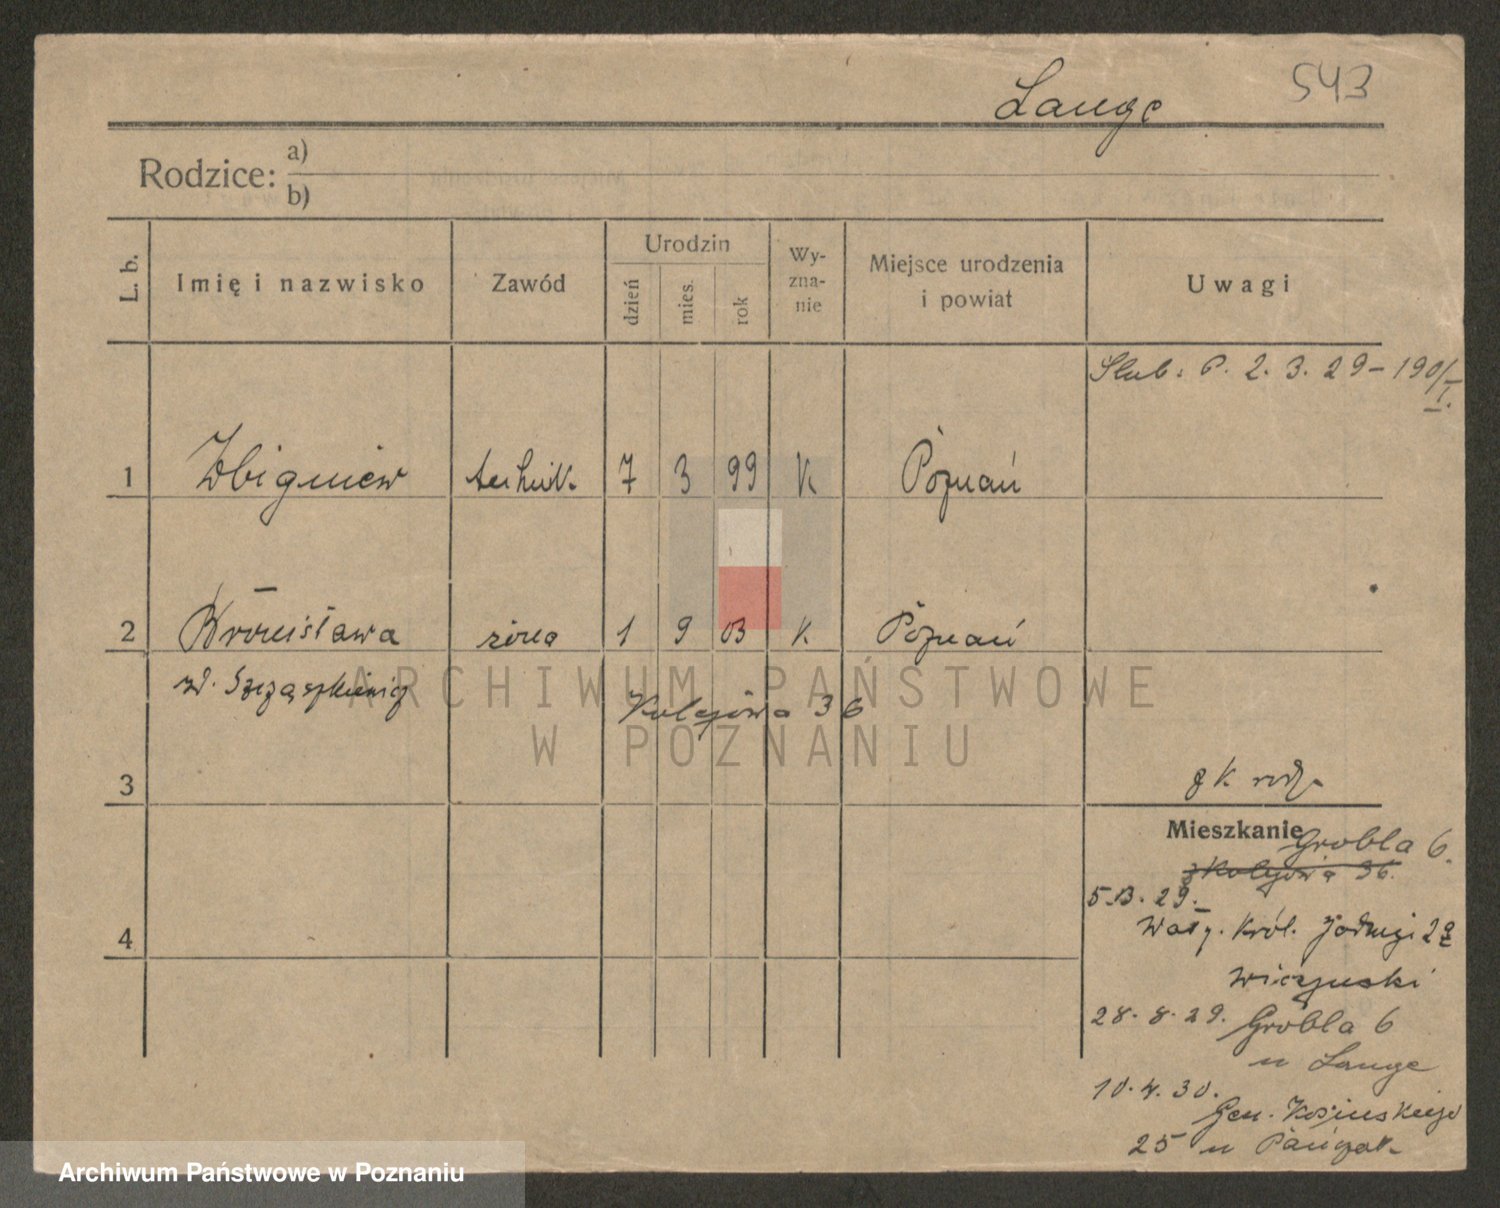 543
Lange
Rodzice: a)
b)
L. b. Imię i nazwisko Zawód Urodzin dzień mies. rok Wy-zna-nie Miejsce urodzenia i powiat Uwagi
Ślub: P. 2. 3. 29 – 190/I.
1 Zbigniew technik. 7 3 99 K Poznań
2 Bronisława żona 1 9 03 K. Poznań
ARCHIWUM PAŃSTWOWE
Kolejowa 36
W POZNANIU
3
Mieszkanie
Grobla 6.
Kolejowa 36.
29.
4
Wały. Król. Jadwigi
28. 8. 29. Grobla 6
u Lange
10. 4. 30.
Gen. Kosińskiego
25 u
Archiwum Państwowe w Poznaniu